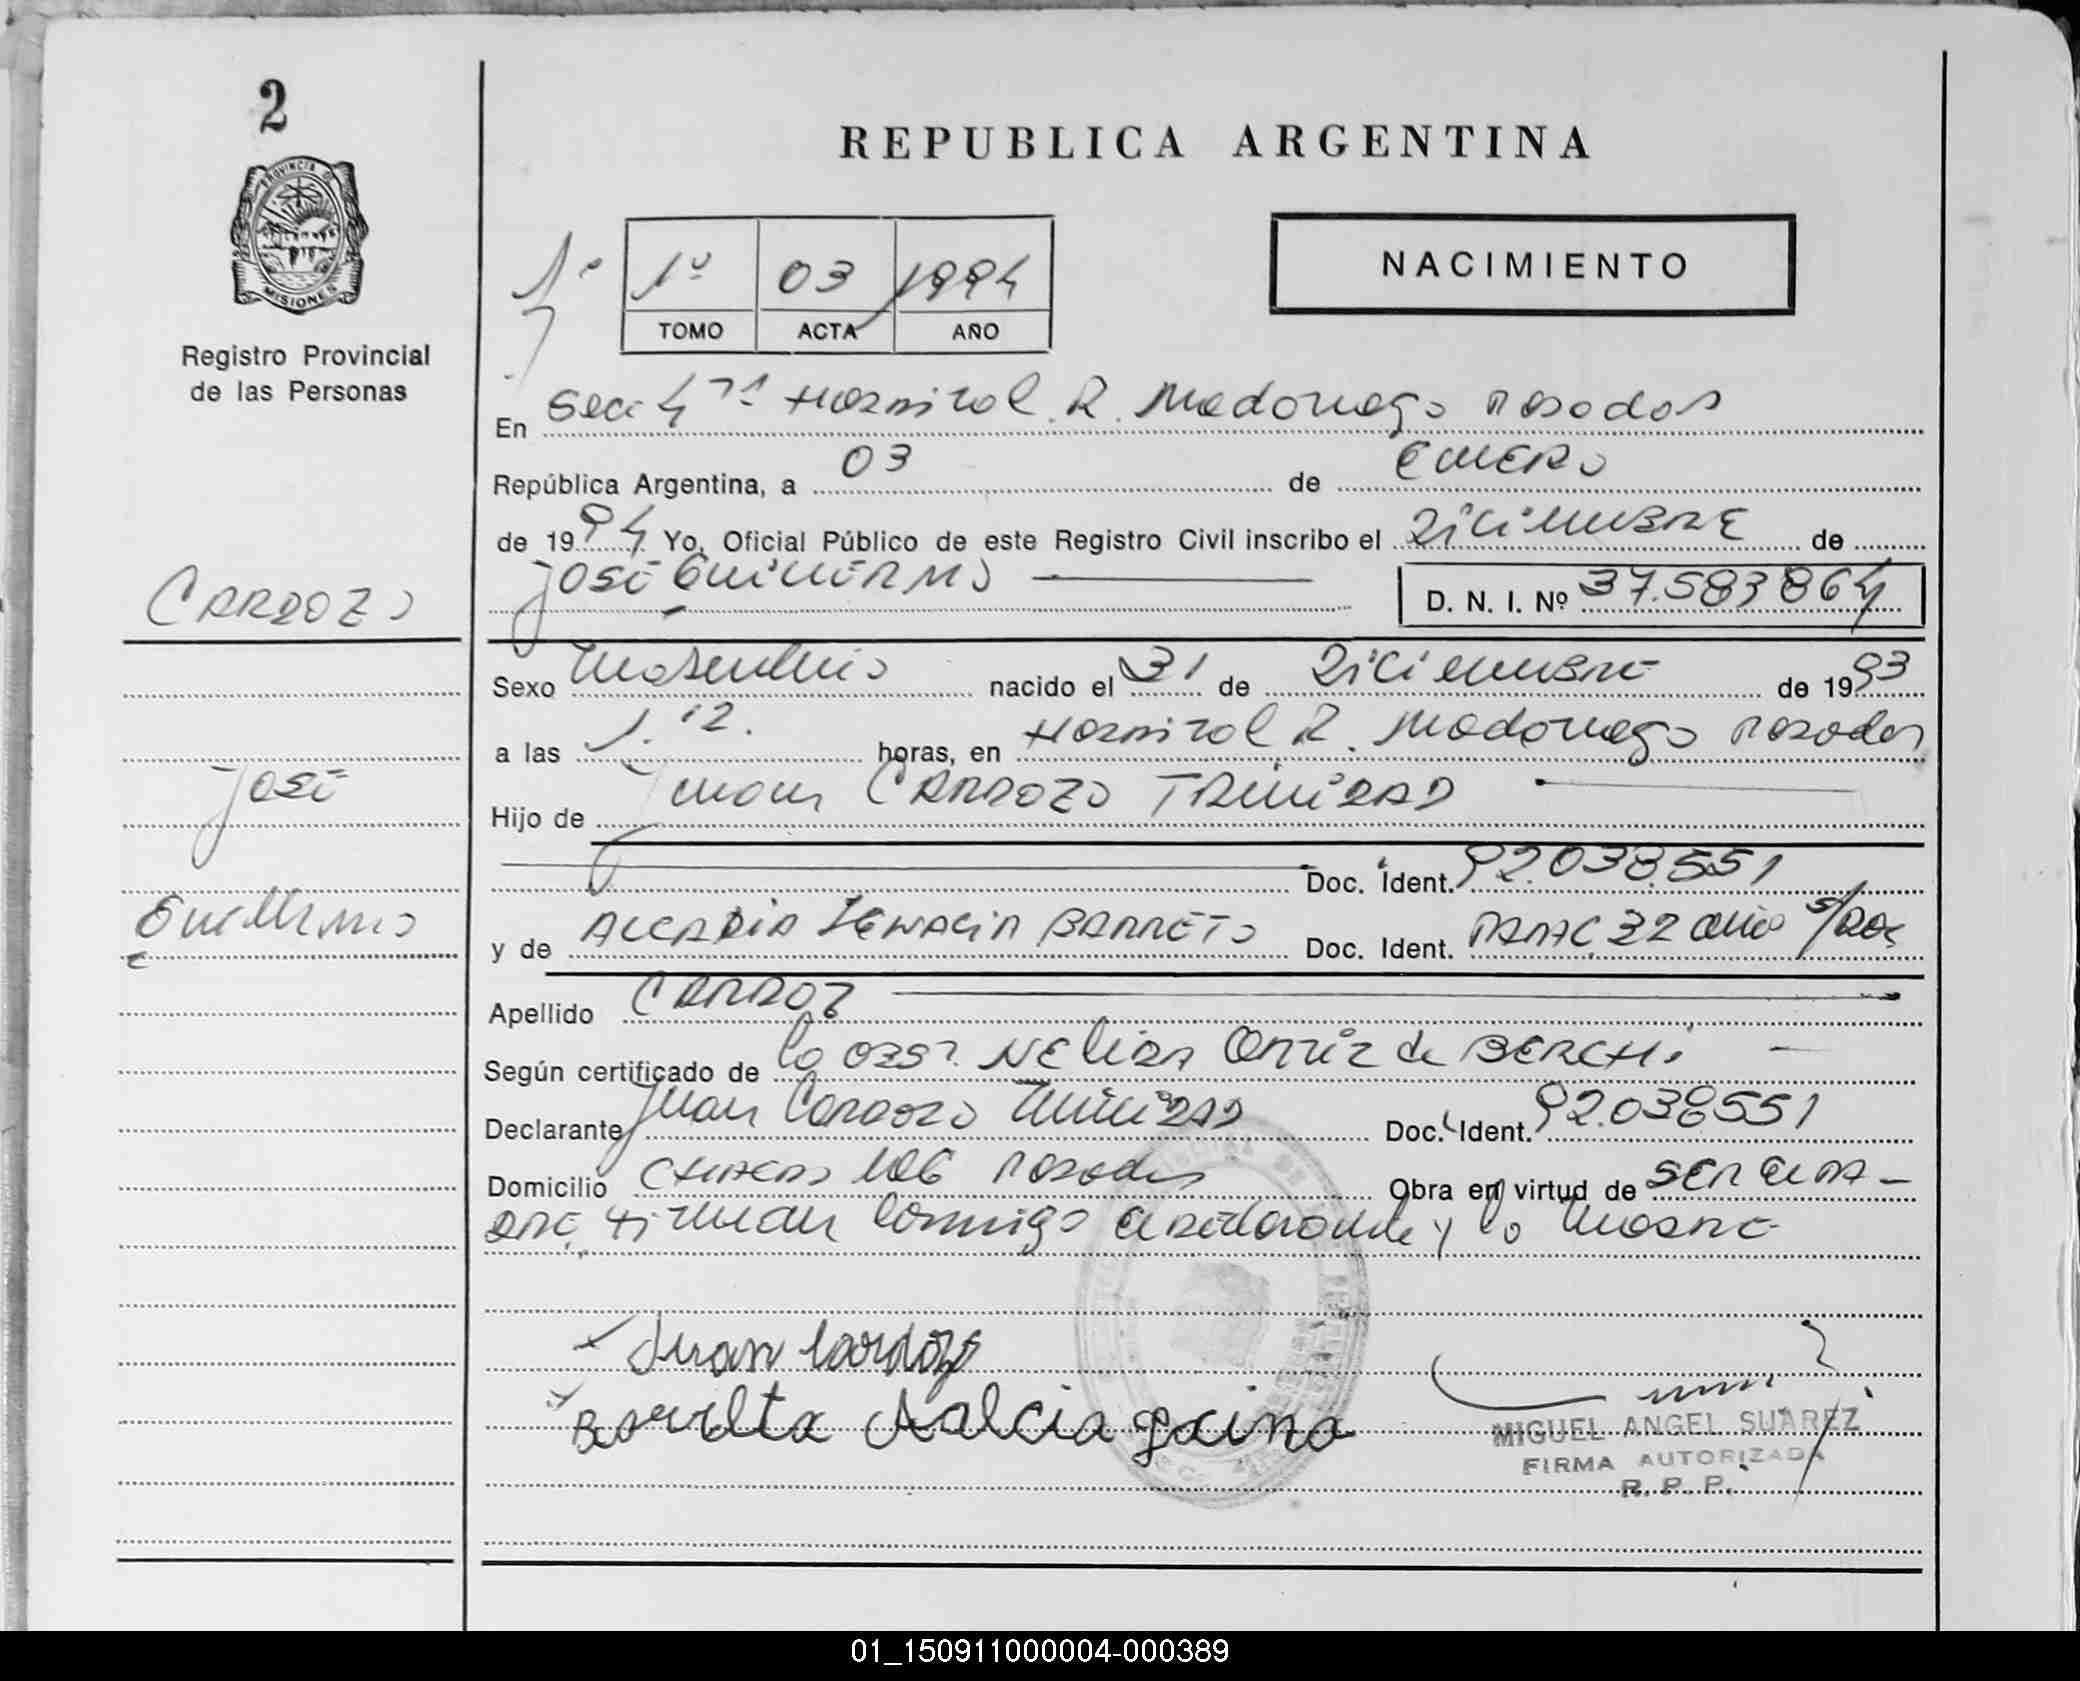 2
REPUBLICA ARGENTINA
PROVINCIA DE
MISIONES
Registro Provincial
de las Personas
1º 03 1994
TOMO ACTA AÑO
NACIMIENTO
En Secc 4ta Hospital R. Madariaga Posadas
República Argentina, a 03 de ENERO
de 1994 Yo, Oficial Público de este Registro Civil inscribo el DiCiEMBRE de
JOSÉ GUILLERMO D. N. I. Nº 37.583864
CARDOZO
Sexo Masculino nacido el 31 de DiCiEMBRE de 1993
a las 1.12. horas, en Hospital R. Madariaga Posadas
José
Hijo de Juan CARDOZO TRINIDAD
Doc. Ident. 92.038.551
Guillermo
y de ALCADIA IGNACIA BARRETO Doc. Ident. PARAG. 32 años s/doc
Apellido CARDOZ
Según certificado de la obst. NELIDA Ortiz de BERCHI
Declarante Juan Cardozo TRINIDAD Doc. Ident. 92.038551
Domicilio CHACRA 106 Posadas Obra en virtud de SER EL PA-
DRE, Firman conmigo el declarante y la Madre
Juan Cardozo
MIGUEL ANGEL SUAREZ
FIRMA AUTORIZADA
R. P. P.
01_150911000004-000389